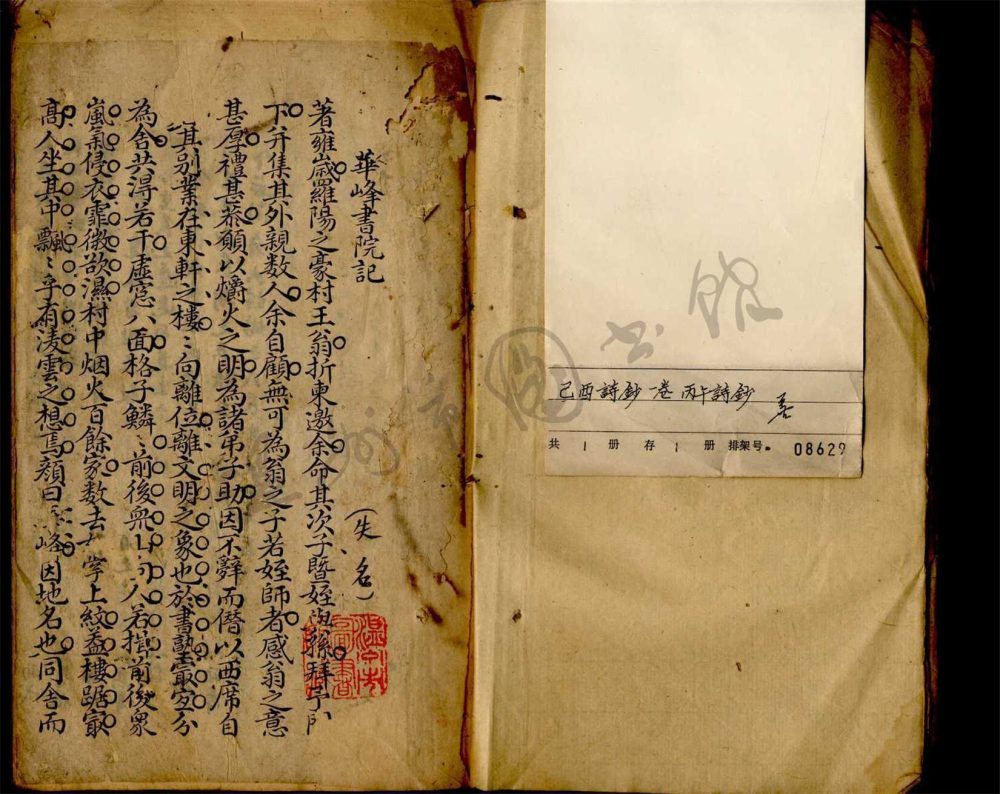 己酉詩鈔一卷 丙午詩鈔
善
共 1 册 存 1 册 排架号. 08629
華峰書院記
(失名)
著雍歲羅陽之豪村王翁折柬邀余命其次子暨姪孫拜于門
下并集其外親数人余自顧無可為翁之子若姪師者感翁之意
甚厚禮甚恭願以爝火之明為諸弟子助因不辭而僭以西席自
其别業在東軒之樓〻向離位離文明之象也於書塾最宜分
為舍共得若干虚窓八面格子鱗〻前後衆山向人若揖前後衆
嵐氣侵衣霏微欲濕村中烟火百餘家数去掌上紋盖樓踞最
高人坐其中飄〻乎有淩雲之想焉顔曰峰因地名也同舍而
圖書館